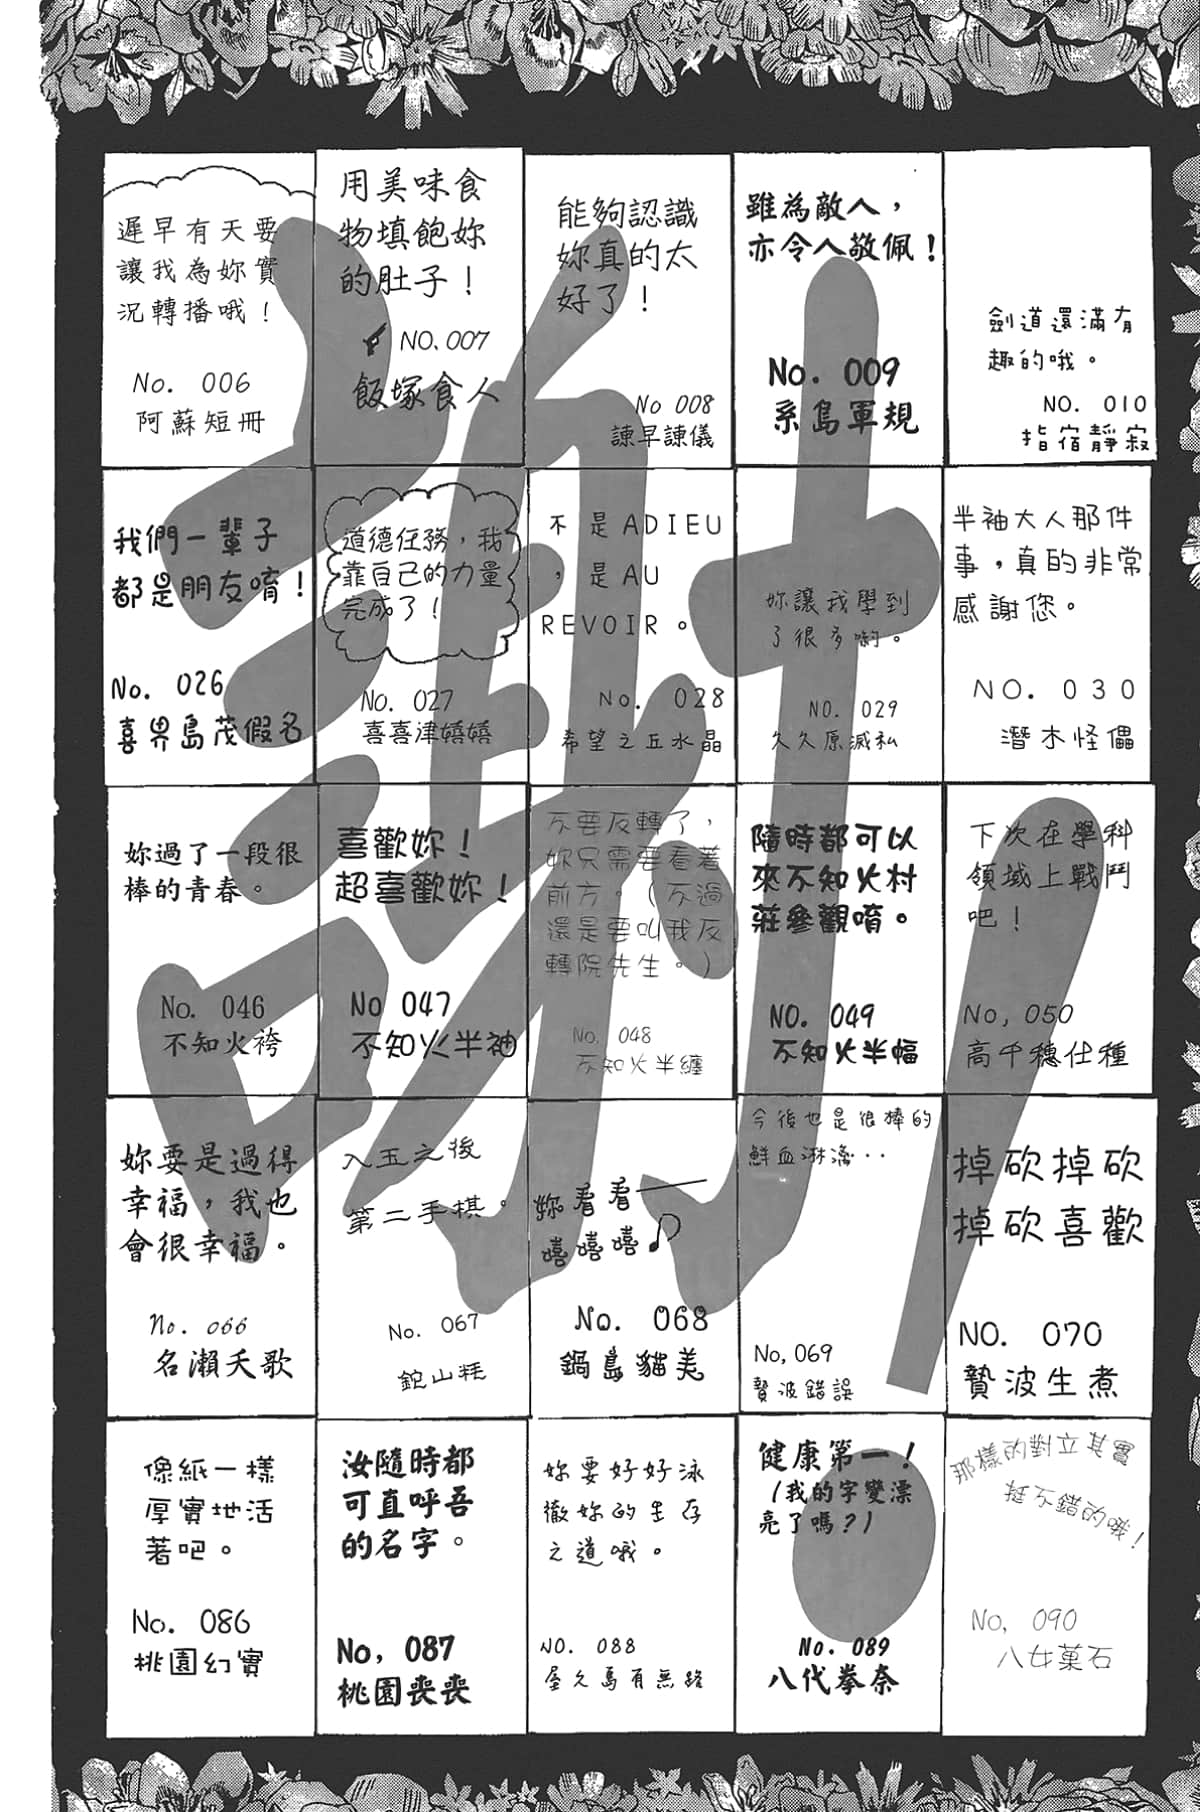 遲早有天要
讓我為妳實
況轉播哦！
No. 006
阿蘇短冊
用美味食
物填飽妳
的肚子！
NO.007
飯塚食人
能夠認識
妳真的太
好了！
No 008
諫早諫儀
雖為敵人，
亦令人敬佩！
No. 009
系島軍規
劍道還滿有
趣的哦。
NO. 010
指宿靜寂
我們一輩子
都是朋友唷！
No. 026
喜界島茂假名
道德任務，我
靠自己的力量
完成了！
No. 027
喜喜津嬉嬉
不是ADIEU
，是AU
REVOIR。
No. 028
希望之丘水晶
妳讓我學到
了很多喲。
NO. 029
久久原滅私
半袖大人那件
事，真的非常
感謝您。
NO. 030
潛木怪儡
妳過了一段很
棒的青春。
No. 046
不知火袴
喜歡妳！
超喜歡妳！
No 047
不知火半袖
不要反轉了，
妳只需要看著
前方。（不過
還是要叫我反
轉院先生。）
No. 048
不知火半纏
隨時都可以
來不知火村
莊參觀唷。
NO. 049
不知火半幅
下次在學科
領域上戰鬥
吧！
No, 050
高千穗仕種
妳要是過得
幸福，我也
會很幸福。
No. 066
名瀨夭歌
入五之後
第二手棋。
No. 067
鉈山耗
妳看看——
嘻嘻嘻♫
No. 068
鍋島貓美
今後也是很棒的
鮮血淋漓··
No, 069
贄波錯誤
掉砍掉砍
掉砍喜歡
NO. 070
贄波生煮
像紙一樣
厚實地活
著吧。
No. 086
桃園幻實
汝隨時都
可直呼吾
的名字。
No, 087
桃園喪喪
妳要好好泳
徹妳的生存
之道哦。
NO. 088
屋久島有無路
健康第一！
（我的字變漂
亮了嗎？）
No. 089
八代拳奈
那樣的對立其實
挺不錯的哦！
No, 090
八女菓石